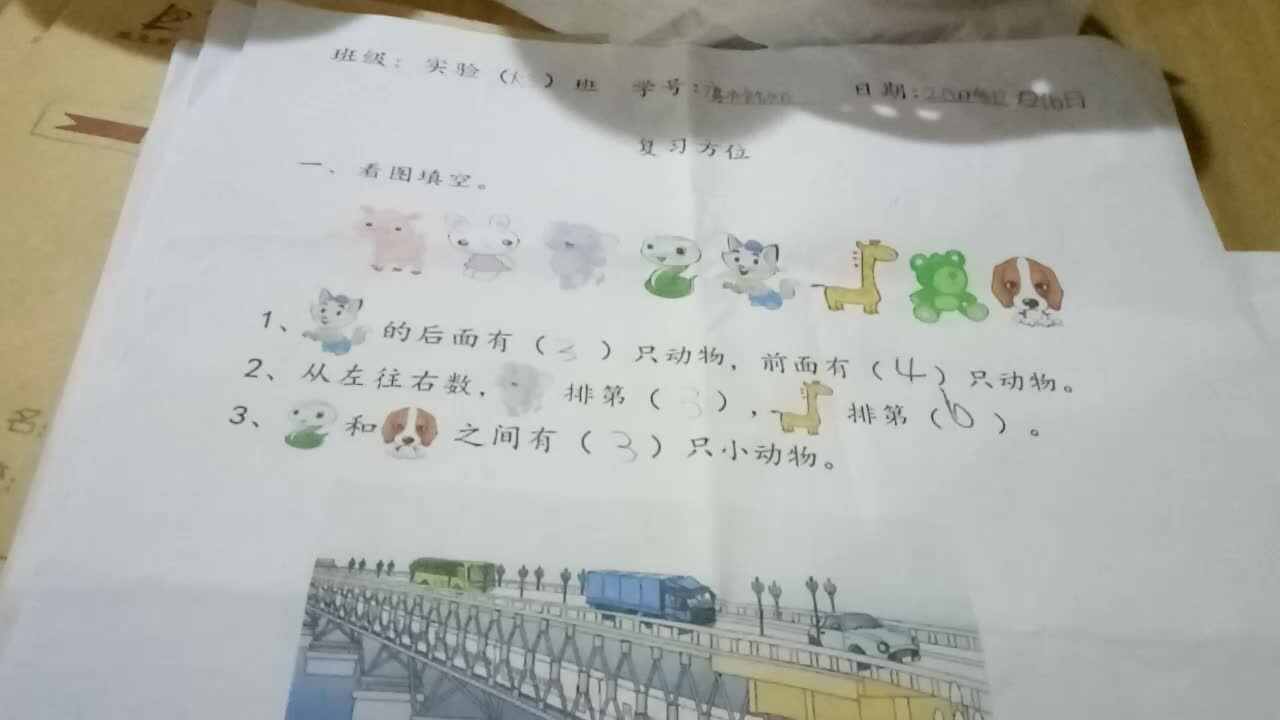 班级：实验（ ）班 学号： 日期： 月16日
复习方位
一、看图填空。
1、 的后面有（3）只动物，前面有（4）只动物。
2、从左往右数， 排第（3）， 排第（6）。
3、 和 之间有（3）只小动物。
名: